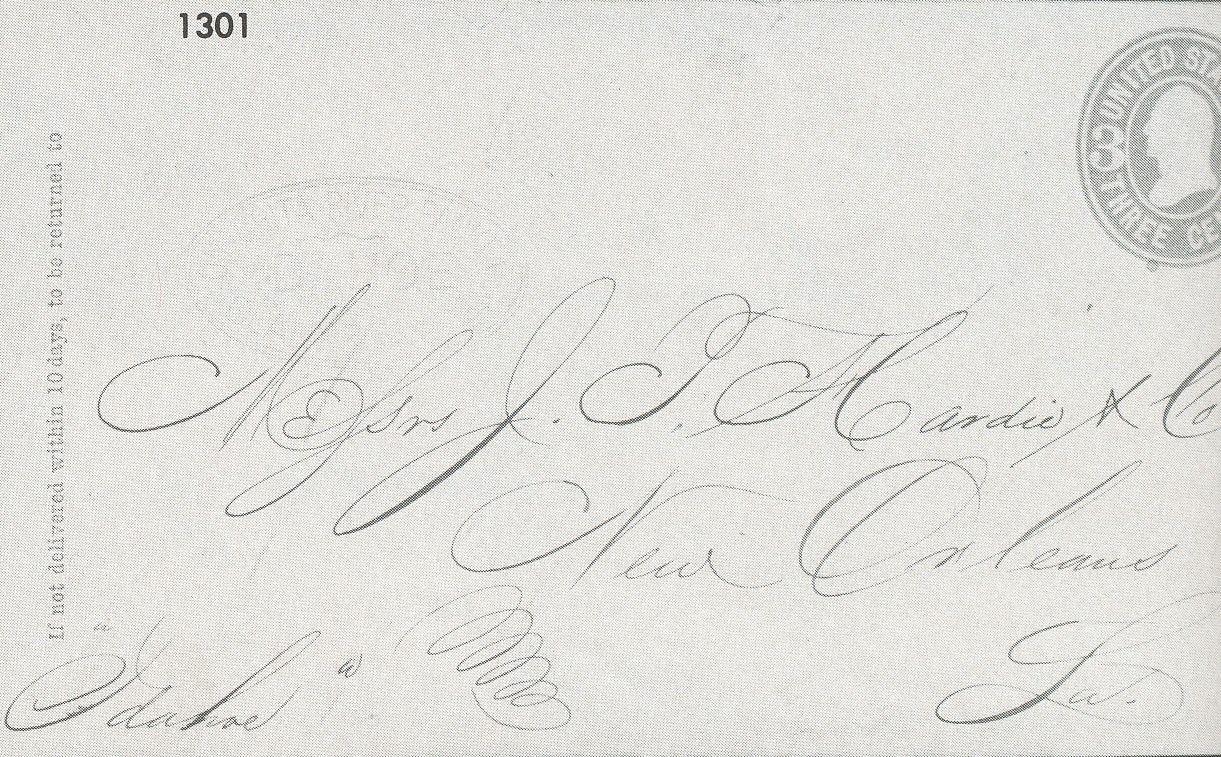 1301
UNITED STA
3
THREE CE
If not delivered within 10 days, to be returned to
Messrs J. T. Hardie & Co
New Orleans
La.
"Idaho"